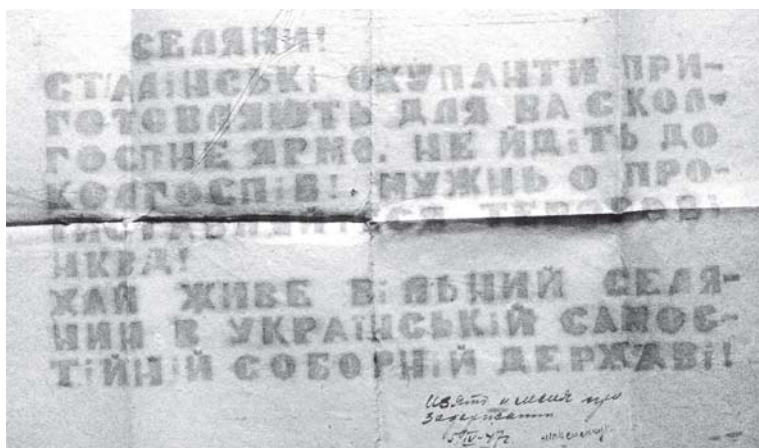 СЕЛЯНИ!
СТАЛІНСЬКІ ОКУПАНТИ ПРИ-
ГОТОВЛЯЮТЬ ДЛЯ ВАС КОЛ-
ГОСПНЕ ЯРМО. НЕ ЙДІТЬ ДО
КОЛГОСПІВ! МУЖНЬО ПРО-
ТИСТАВЛЯЙТЕСЯ ТЕРОРОВІ
НКВД!
ХАЙ ЖИВЕ ВІЛЬНИЙ СЕЛЯ-
НИН В УКРАЇНСЬКІЙ САМОС-
ТІЙНІЙ СОБОРНІЙ ДЕРЖАВІ!
Изято у меня при
задержании
5/IV-47г